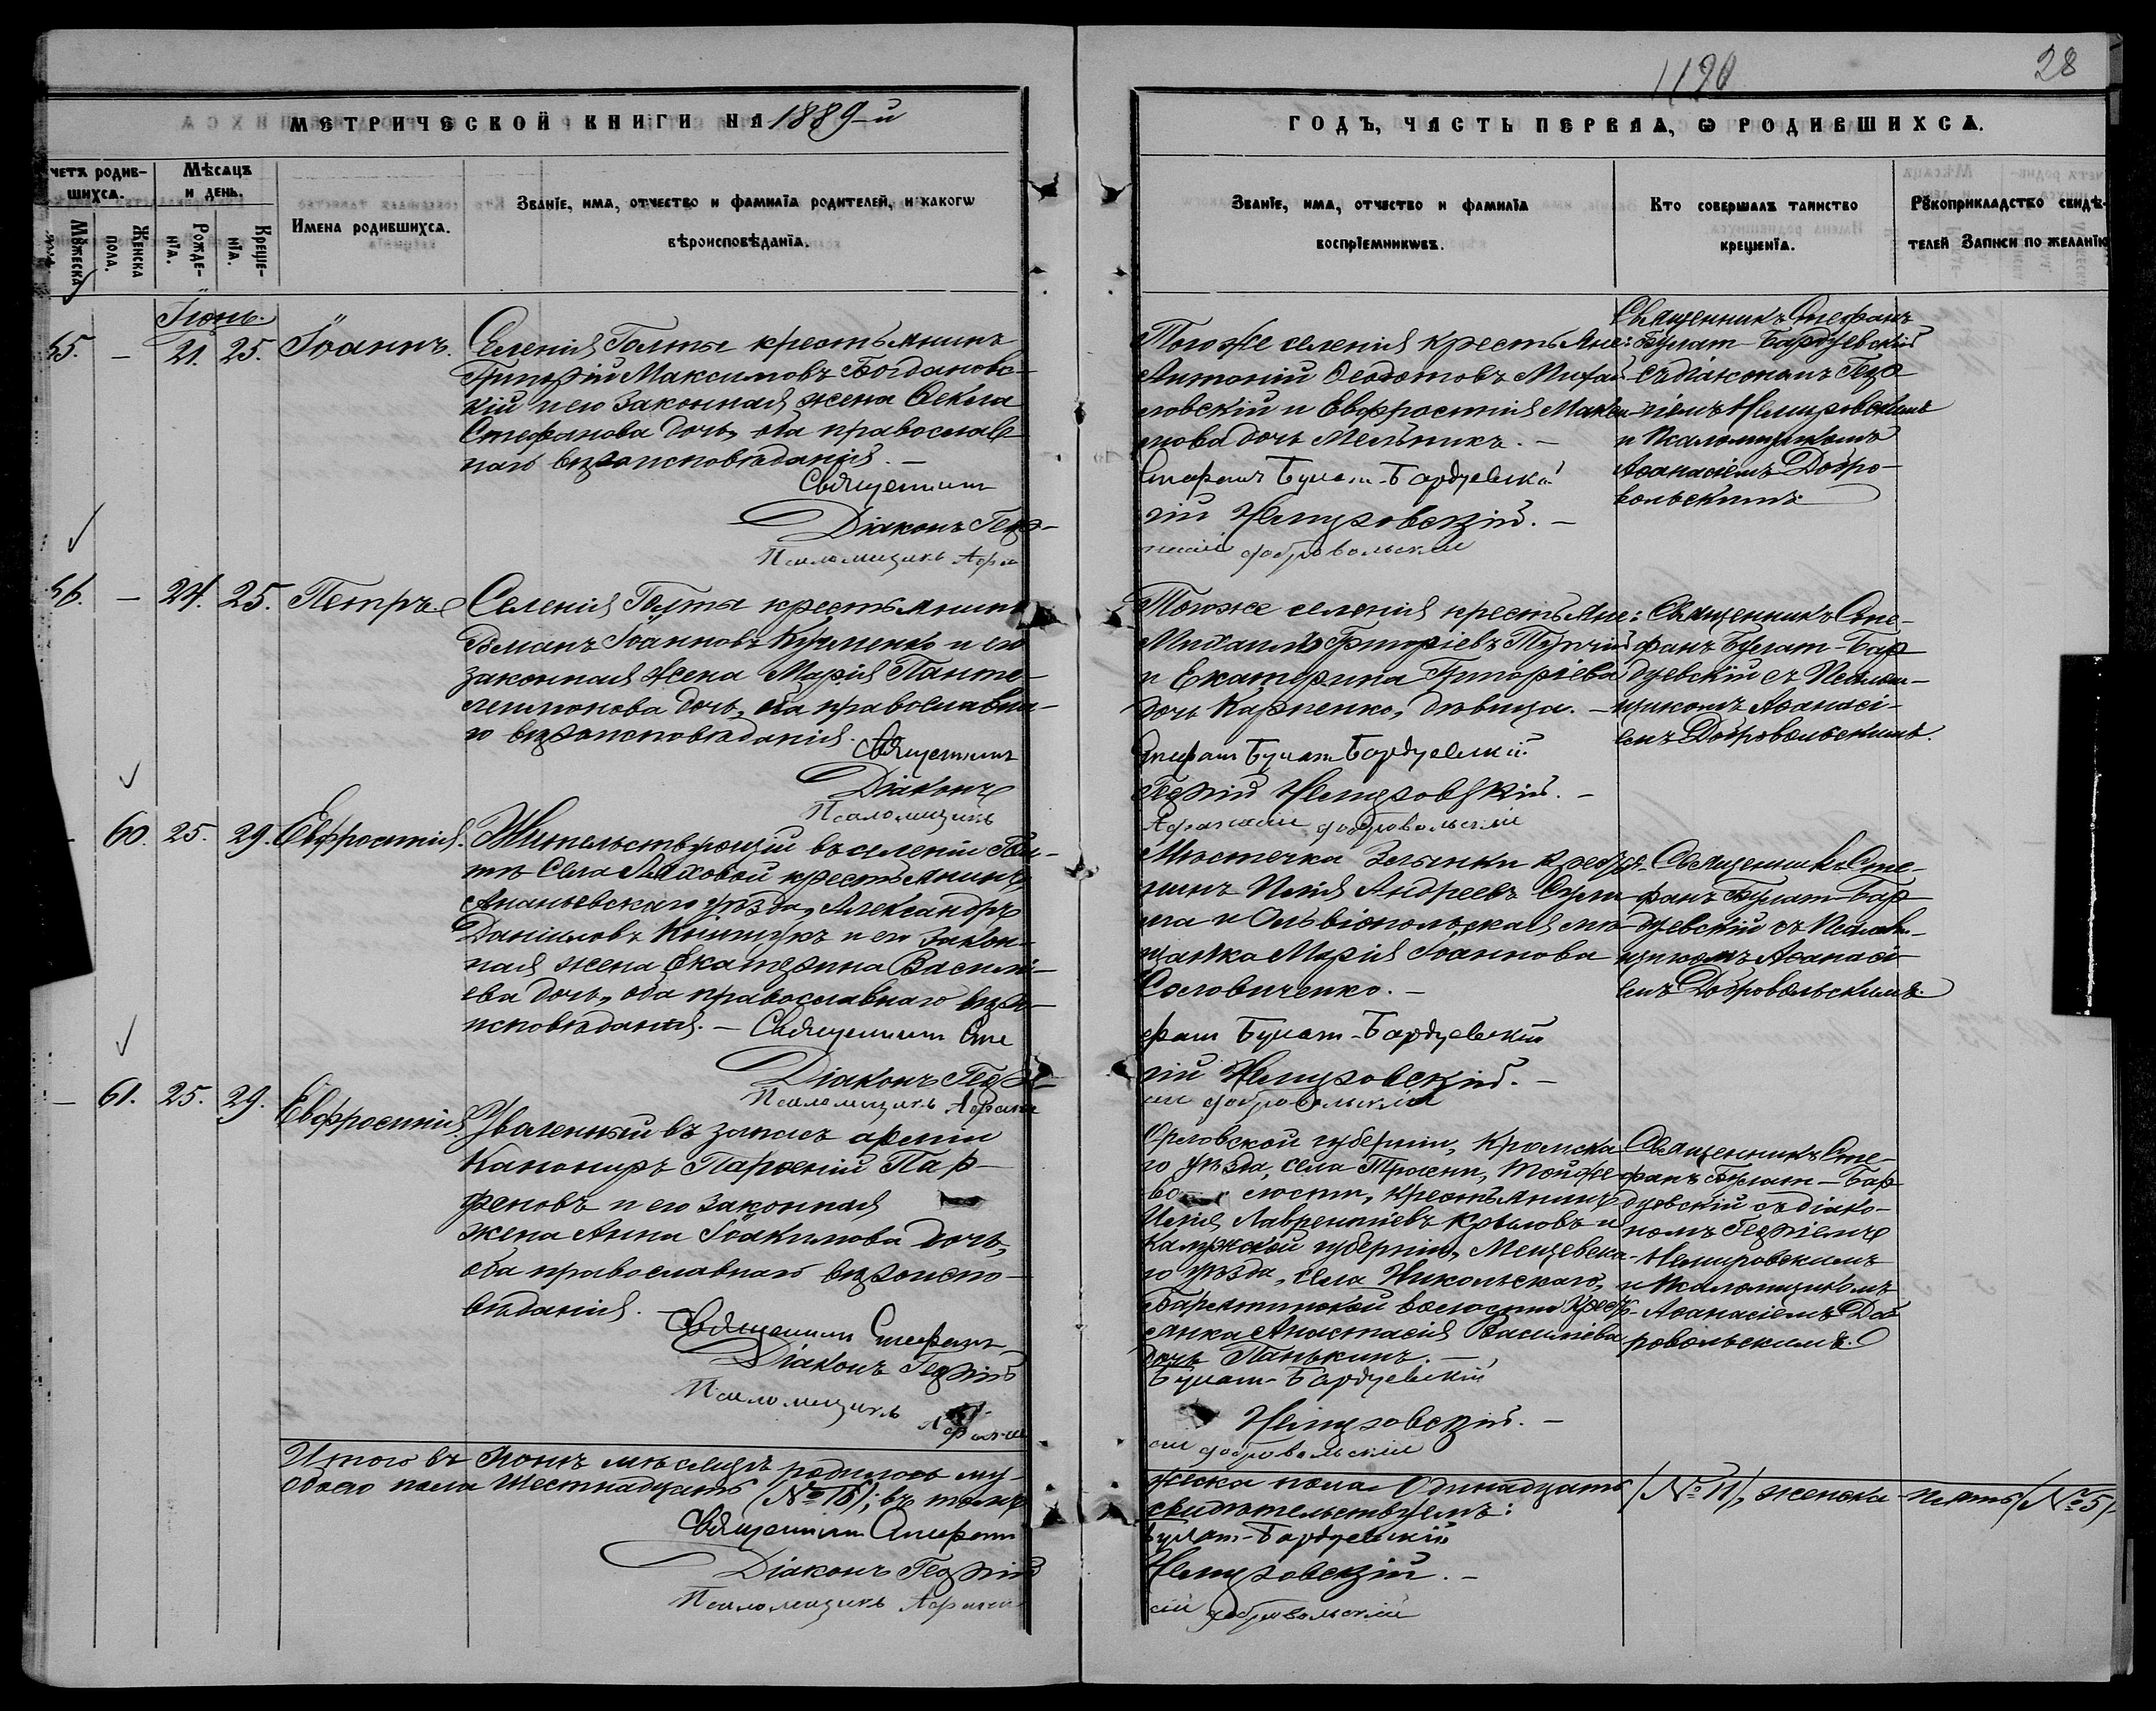 1190
28
МЕТРИЧЕСКОЙ КНИГИ НА 1889-й
ГОДЪ, ЧАСТЬ ПЕРВАЯ, Ѡ РОДИВШИХСЯ.
четъ родив-
шихся.
Мѣсяцъ
и день.
Мужеска
пола.
Женска
пола.
Рожде-
нїя.
Креще-
нїя.
Имена родившихся.
Званїе, имя, отчество и фамилїя родителей, и какогѡ
вѣроисповѣданїя.
Званїе, имя, отчество и фамилїя
воспрїемникѡвъ.
Кто совершалъ таинство
крещенїя.
Рукоприкладство свидѣ-
телей записи по желанїю
Іюнь.
55. — 21. 25. Іоаннъ.
Селенія Голты крестьянинъ
Григорій Максимовъ Богдановс-
кій и его законная жена Ѳекла
Стефанова дочь, оба православ-
наго вѣроисповѣданія. —
Священникъ
Діаконъ Геор-
Псаломщикъ Афана
Тогоже селенія крестьяне:
Антоній Ѳедотовъ Михай-
ловскій и Евфросинія Макси-
мова дочь Мельникъ. —
Стефанъ Булат-Бардуевскій
гій Немировскій. —
сій Добровольскій
Священникъ Стефанъ
Булат-Бардуевскій
съ діакономъ Геор-
гіемъ Немировскимъ
и Псаломщикомъ
Аѳанасіемъ Добро-
вольскимъ
56. — 24. 25. Петръ.
Селенія Голты крестьянинъ
Романъ Іоанновъ Кузменко и его
законная жена Марія Панте-
леимонова дочь, оба православна-
го вѣроисповѣданія.
Священникъ
Діаконъ
Псаломщикъ
Тогоже селенія крестьяне:
Михаилъ Григоріевъ
и Екатерина Григоріева
дочь Карпенко, дѣвица. —
Стефанъ Булат Бардуевскій
Георгій Немировскій. —
Афанасій Добровольскій
Священникъ Сте-
фанъ Булат-Бар
дуевскій съ Псалом-
щикомъ Аѳанасі-
емъ Добровольскимъ.
— 60. 25. 29. Евфросинія.
Жительствующій въ селеніи Гол-
тѣ села Ляховой крестьянинъ
Ананьевскаго уѣзда, Александръ
Даніиловъ и его закон-
ная жена Екатерина Василі-
ева дочь, оба православнаго вѣро-
исповѣданія. — Священникъ Сте
Діаконъ Геор-
Псаломщикъ Афана
Мѣстечка крестья-
нинъ Илія Андреевъ
и Ольвіопольская мѣ-
щанка Марія Іоаннова
Соловиченко. —
фанъ Булат-Бардуевскій
гій Немировскій. —
сій Добровольскій
Священникъ Сте-
фанъ Булат-Бар
дуевскій съ Псалом-
щикомъ Аѳанасі-
емъ Добровольскимъ.
— 61. 25. 29. Евфросинія.
Уволенный въ запасъ арміи
Канониръ Парѳеній Пар-
феновъ и его законная
жена Анна Іоакимова дочь,
оба православнаго вѣроиспо-
вѣданія. —
Священникъ Стефанъ
Діаконъ Георгій
Псаломщикъ
Афанас
Орловской губерніи, Кромска
го уѣзда, села Тросни, тойже
волости, крестьянинъ
Илія Лаврентіевъ Крыловъ и
Калужской губерніи, Мещевска-
го уѣзда, села Никольскаго,
волости крестъ-
янка Анастасія Василіева
дочь Панькинъ. —
Булат-Бардуевскій
Немировскій. —
сій Добровольскій
Священникъ Сте-
фанъ Булат-Бар
дуевскій съ діако-
номъ Георгіемъ
Немировскимъ
и Псаломщикомъ
Аѳанасіемъ Доб
ровольскимъ.
Итого въ Іюнѣ мѣсяцѣ родилось му-
жеска пола Одинадцать /№ 11/, женска - пять /№ 5/
обоего пола Шестнадцать /№ 16/; въ томъ
свидѣтельствуемъ:
Священникъ Стефанъ
Булат-Бардуевскій
Діаконъ Георгій
Немировскій. —
Псаломщикъ Афана
сій Добровольскій